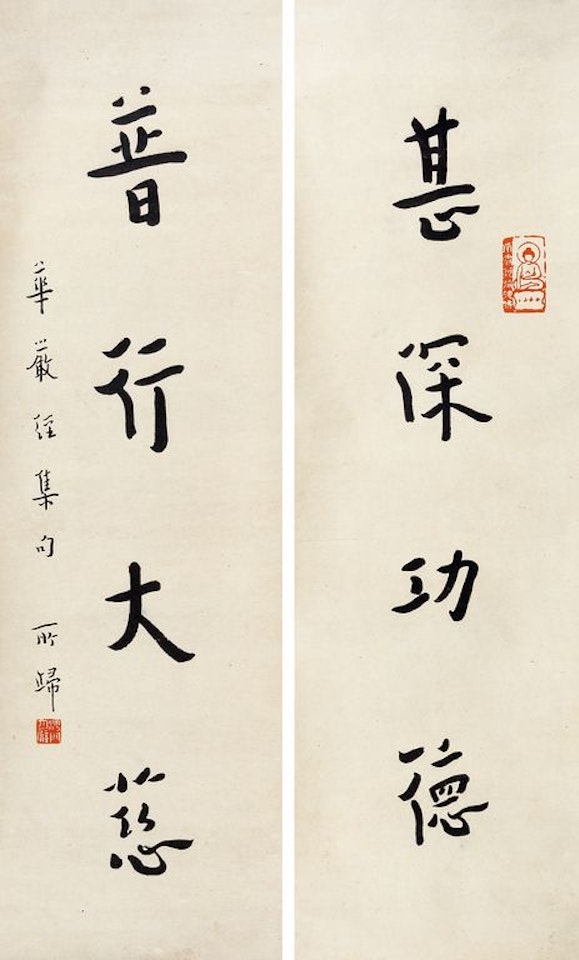 甚深功德
普行大慈
華嚴經集句 所歸